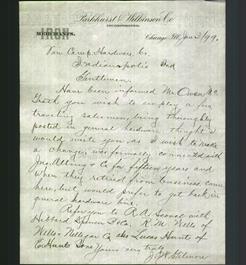 Parkhurst & Wilkinson Co
INCORPORATED
IRON
MERCHANTS.
Chicago, Ill, Jan 3/99.
Van Camp Hardware Co.
Indianapolis Ind
Gentlemen.
Have been informed Mr Owen
that you wish to employ a few
traveling salesmen, being thoroughly
posted in general hardware, thought I
would write you as I wish to make
a change; was formally connected with
& Co for fifteen years and
when they retired from business came
here, but would prefer to get back in
general hardware line.
Refer you to R. A. with
Hibbard Spencer & Co. R. M. Wells of
Wells & Nelligan Co also Lucas Hunts of
Hunts Sons Yours very truly
Gilmore